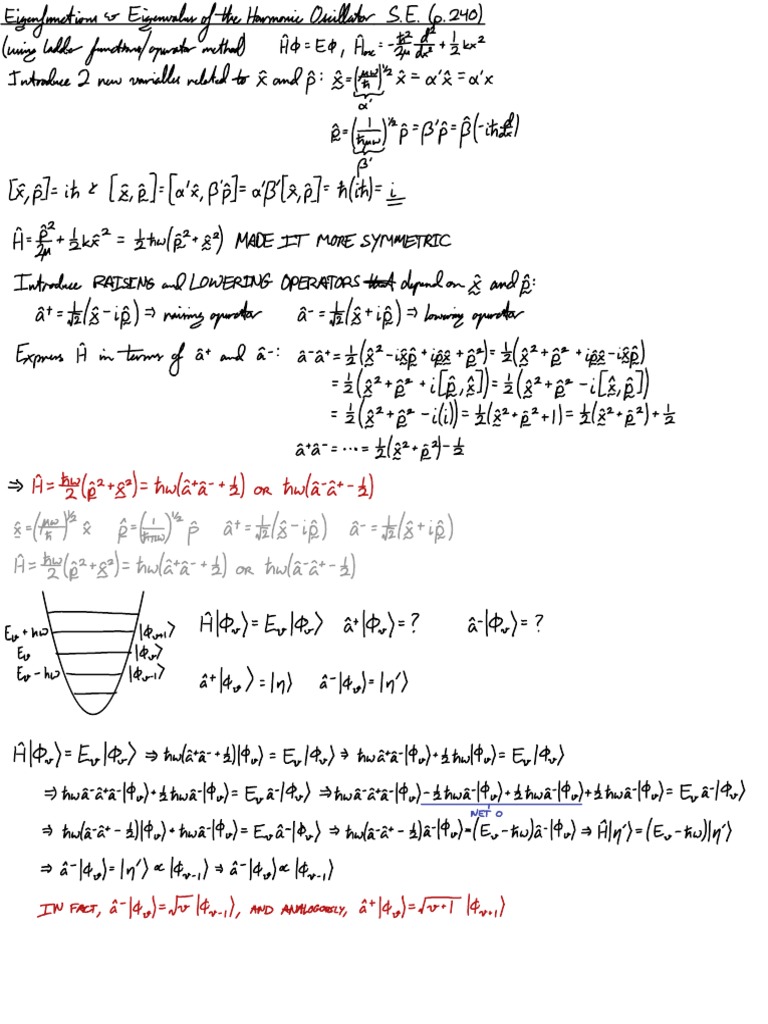 Eigenfunctions & Eigenvalues of the Harmonic Oscillator S.E. (p.240)
(using ladder functions/operator method) Ĥϕ = Eϕ, Ĥosc = -ħ²/2μ d²/dx² + 1/2 kx²
Introduce 2 new variables related to x̂ and p̂: x̰̂ = (μω/ħ)^1/2 x̂ = α'x̂ = α'x
α'
p̰̂ = (1/ħμω)^1/2 p̂ = β'p̂ = β̂(-iħ d/dx)
β'
[x̂,p̂] = iħ & [x̰̂,p̰̂] = [α'x̂, β'p̂] = α'β'[x̂,p̂] = ħ(iħ) = i
Ĥ = p̂²/2μ + 1/2 kx̂² = 1/2 ħω(p̰̂² + x̰̂²) MADE IT MORE SYMMETRIC
Introduce RAISING and LOWERING OPERATORS that depend on x̰̂ and p̰̂:
â⁺ = 1/√2 (x̰̂ - ip̰̂) ⇒ raising operator â⁻ = 1/√2 (x̰̂ + ip̰̂) ⇒ lowering operator
Express Ĥ in terms of â⁺ and â⁻: â⁻â⁺ = 1/2(x̰̂² - ix̰̂p̰̂ + ip̰̂x̰̂ + p̰̂²) = 1/2(x̰̂² + p̰̂² + ip̰̂x̰̂ - ix̰̂p̰̂)
= 1/2(x̰̂² + p̰̂² + i[p̰̂,x̰̂]) = 1/2(x̰̂² + p̰̂² - i[x̰̂,p̰̂])
= 1/2(x̰̂² + p̰̂² - i(i)) = 1/2(x̰̂² + p̰̂² + 1) = 1/2(x̰̂² + p̰̂²) + 1/2
â⁺â⁻ = ⋯ = 1/2(x̰̂² + p̰̂²) - 1/2
⇒ Ĥ = ħω/2 (p̰̂² + x̰̂²) = ħω(â⁺â⁻ + 1/2) OR ħω(â⁻â⁺ - 1/2)
x̰̂ = (μω/ħ)^1/2 x̂ p̰̂ = (1/ħmω)^1/2 p̂ â⁺ = 1/√2 (x̰̂ - ip̰̂) â⁻ = 1/√2 (x̰̂ + ip̰̂)
Ĥ = ħω/2 (p̰̂² + x̰̂²) = ħω(â⁺â⁻ + 1/2) OR ħω(â⁻â⁺ - 1/2)
Ĥ|ϕv⟩ = Ev|ϕv⟩ â⁺|ϕv⟩ = ? â⁻|ϕv⟩ = ?
Ev + ħω |ϕv+1⟩
Ev |ϕv⟩
Ev - ħω |ϕv-1⟩
â⁺|ϕv⟩ = |η⟩ â⁻|ϕv⟩ = |η'⟩
Ĥ|ϕv⟩ = Ev|ϕv⟩ ⇒ ħω(â⁺â⁻ + 1/2)|ϕv⟩ = Ev|ϕv⟩ ⇒ ħωâ⁺â⁻|ϕv⟩ + 1/2 ħω|ϕv⟩ = Ev|ϕv⟩
⇒ ħωâ⁻â⁺â⁻|ϕv⟩ + 1/2 ħωâ⁻|ϕv⟩ = Ev â⁻|ϕv⟩ ⇒ ħωâ⁻â⁺â⁻|ϕv⟩ - 1/2 ħωâ⁻|ϕv⟩ + 1/2 ħωâ⁻|ϕv⟩ + 1/2 ħωâ⁻|ϕv⟩ = Ev â⁻|ϕv⟩
NET 0
⇒ ħω(â⁻â⁺ - 1/2)|ϕv⟩ + ħωâ⁻|ϕv⟩ = Evâ⁻|ϕv⟩ ⇒ ħω(â⁻â⁺ - 1/2)â⁻|ϕv⟩ = (Ev - ħω)â⁻|ϕv⟩ ⇒ Ĥ|η'⟩ = (Ev - ħω)|η'⟩
⇒ â⁻|ϕv⟩ = |η'⟩ ∝ |ϕv-1⟩ ⇒ â⁻|ϕv⟩ ∝ |ϕv-1⟩
IN FACT, â⁻|ϕv⟩ = √v |ϕv-1⟩, AND ANALOGOUSLY, â⁺|ϕv⟩ = √v+1 |ϕv+1⟩